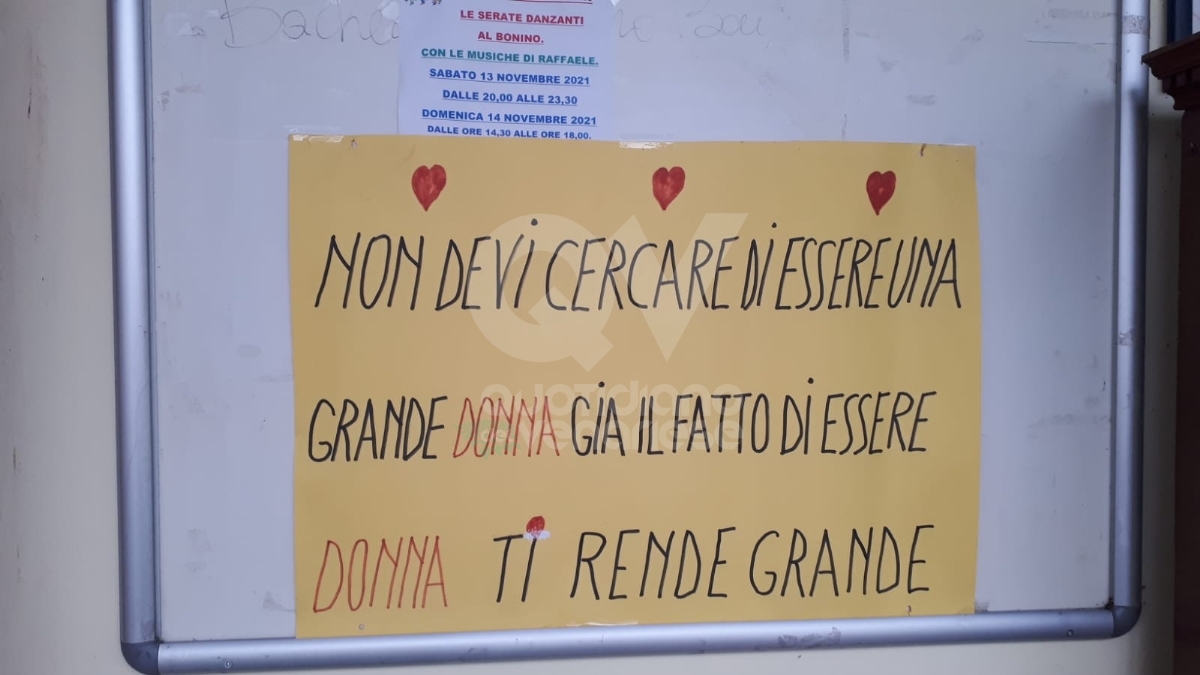 LE SERATE DANZANTI
AL BONINO.
CON LE MUSICHE DI RAFFAELE.
SABATO 13 NOVEMBRE 2021
DALLE 20,00 ALLE 23,30
DOMENICA 14 NOVEMBRE 2021
DALLE ORE 14,30 ALLE ORE 18,00.
NON DEVI CERCARE DI ESSERE UNA
GRANDE DONNA GIA IL FATTO DI ESSERE
DONNA TI RENDE GRANDE
QV
quotidiano